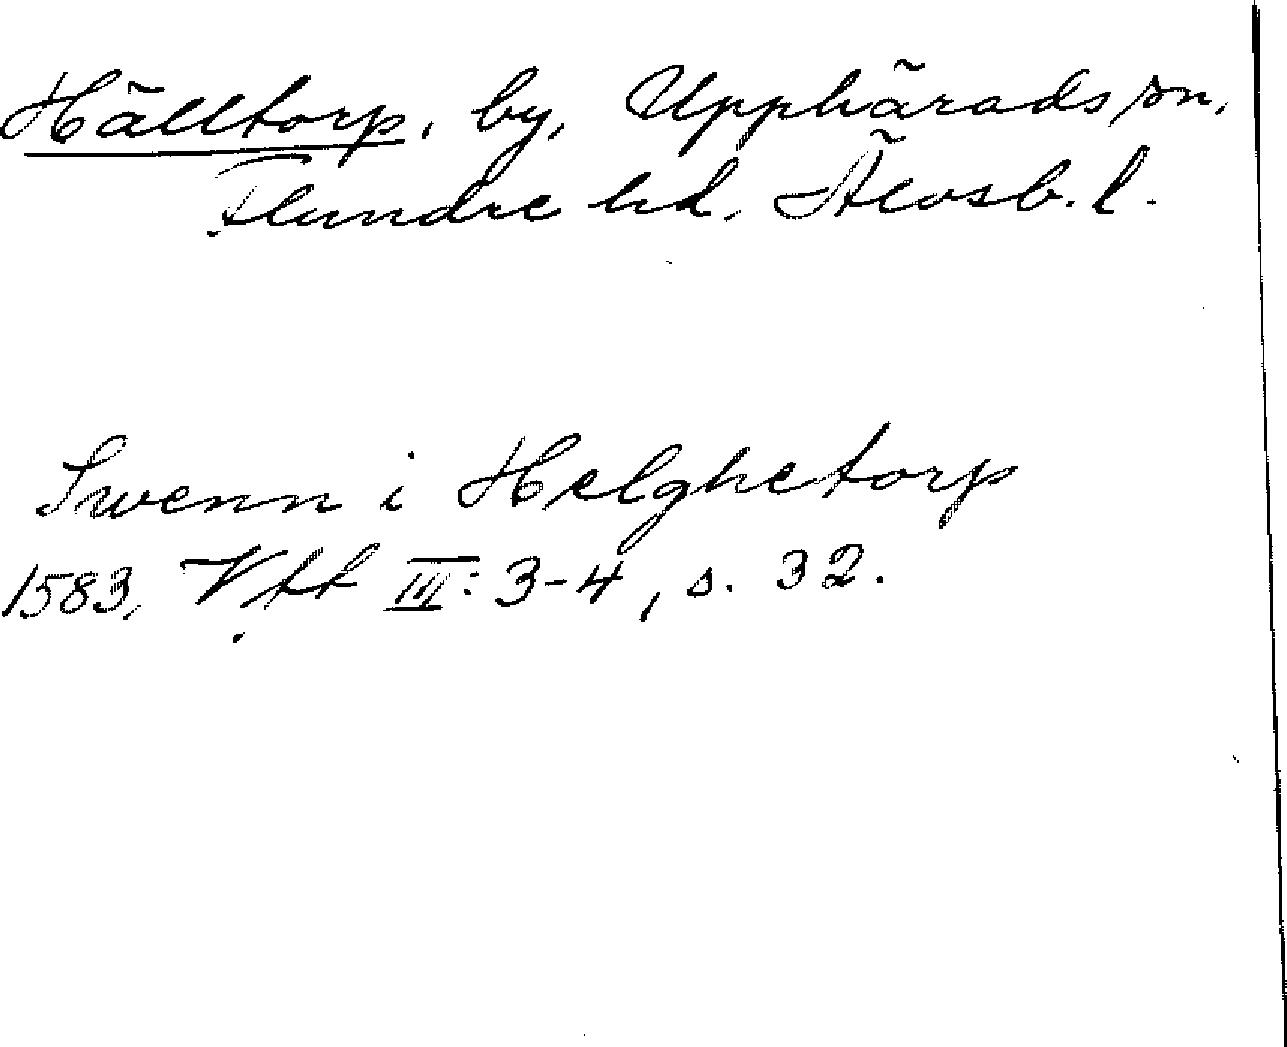 Hälltorp, by, Upphärads sn,
Flundre hd, Älvsb. l.
Swenn i Helghetorp
1583, Vtt III: 3-4, s. 32.